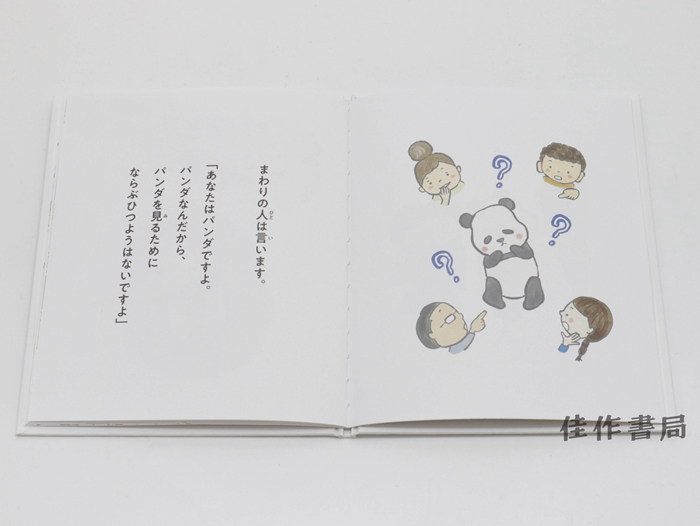 まわりの人は言います。
「あなたはパンダですよ。
パンダなんだから、
パンダを見るために
ならぶひつようはないですよ」
ひと
い
み
?
?
?
佳作書局